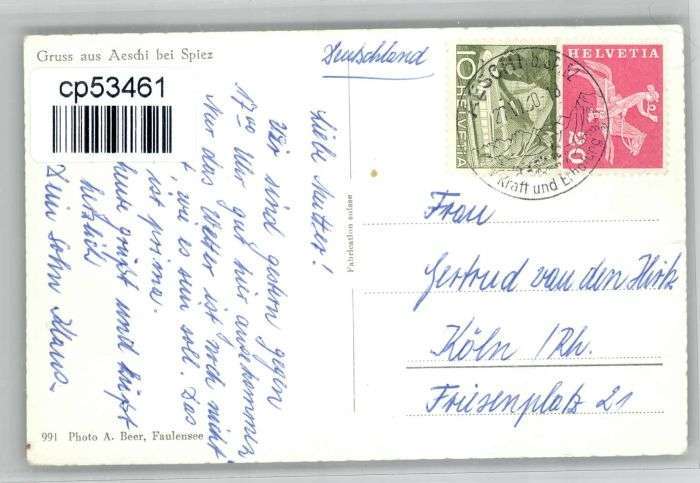 Gruss aus Aeschi bei Spiez
cp53461
Deutschland
10 HELVETIA
HELVETIA
20
AESCHI b. SPIEZ
Kraft und
Liebe Mutter!
Wir sind gestern gegen
17 00 Uhr gut hier angekommen
Nur das Wetter ist noch nicht
, wie es sein soll. Das
ist prima.
grüßt und küßt
herzlich
Dein Sohn Klaus
Fabrication suisse
Frau
Gertrud van den Hirtz
Köln /Rh.
Friesenplatz 21
991 Photo A. Beer, Faulensee